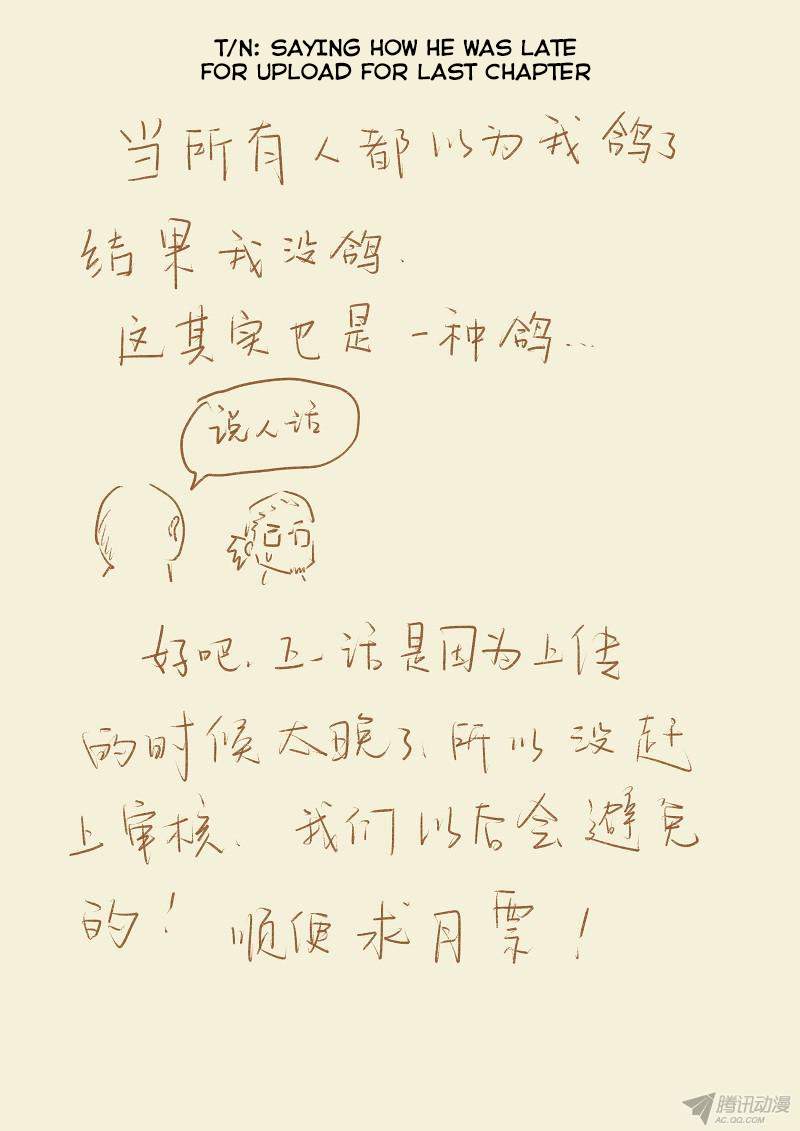 T/N: SAYING HOW HE WAS LATE
FOR UPLOAD FOR LAST CHAPTER
当所有人都以为我鸽了
结果我没鸽.
这其实也是一种鸽...
说人话
好吧.五一话是因为上传
的时候太晚了、所以没赶
上审核、我们以后会避免
的！顺便求月票！
腾讯动漫
AC.QQ.COM